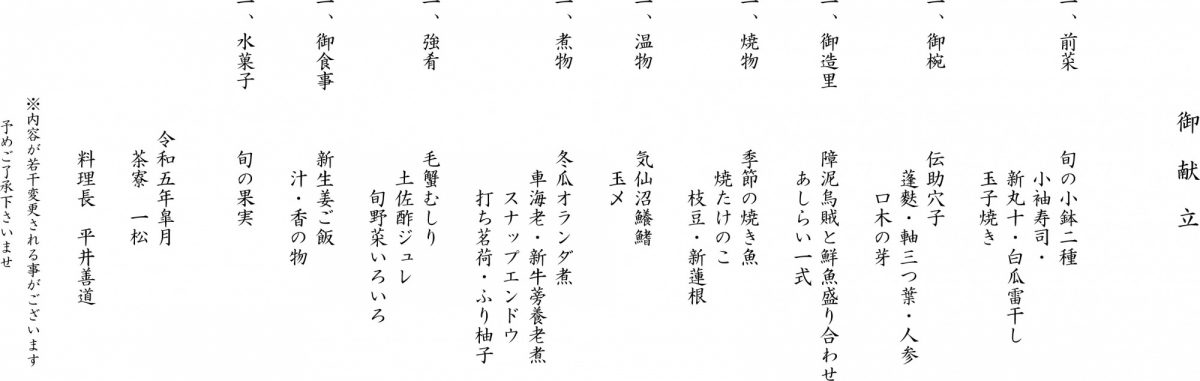 御献立
一、前菜 旬の小鉢二種
小袖寿司・
新丸十・白瓜雷干し
玉子焼き
一、御椀 伝助穴子
蓬麩・軸三つ葉・人参
口木の芽
一、御造里 障泥烏賊と鮮魚盛り合わせ
あしらい一式
一、焼物 季節の焼き魚
焼たけのこ
枝豆・新蓮根
一、温物 気仙沼鱶鰭
玉〆
一、煮物 冬瓜オランダ煮
車海老・新牛蒡養老煮
スナップエンドウ
打ち茗荷・ふり柚子
一、強肴 毛蟹むしり
土佐酢ジュレ
旬野菜いろいろ
一、御食事 新生姜ご飯
汁・香の物
一、水菓子 旬の果実
令和五年皐月
茶寮 一松
料理長 平井善道
※内容が若干変更される事がございます
予めご了承下さいませ